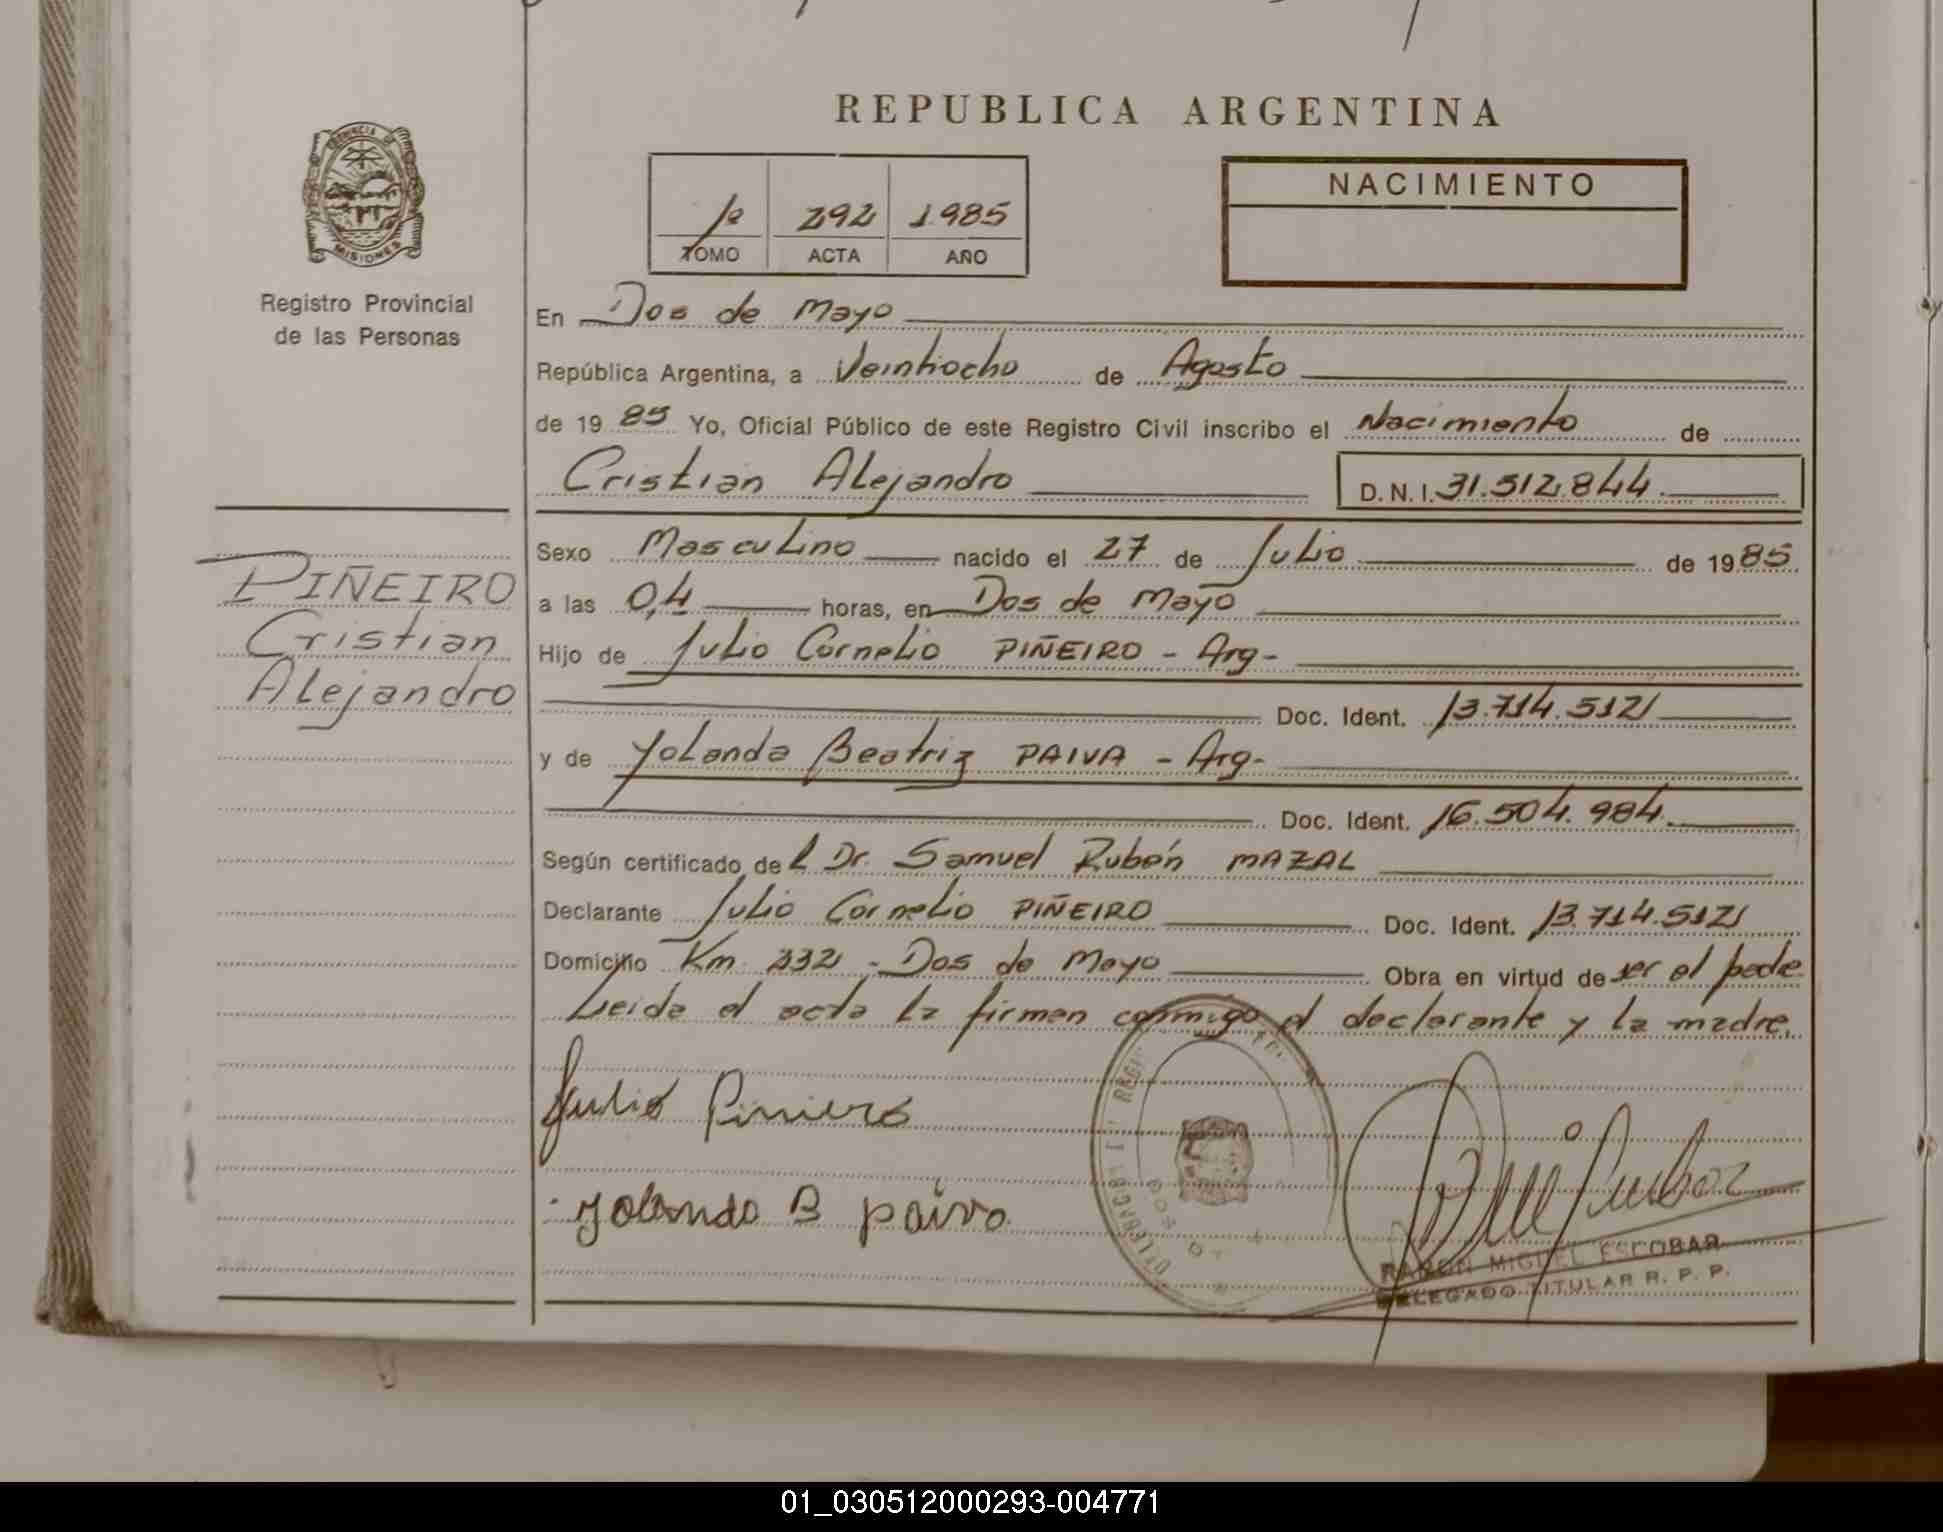 REPUBLICA ARGENTINA
PROVINCIA DE
MISIONES
Registro Provincial
de las Personas
1º 292 1985
TOMO ACTA AÑO
NACIMIENTO
En Dos de Mayo
República Argentina, a Veintiocho de Agosto
de 19 85 Yo, Oficial Público de este Registro Civil inscribo el Nacimiento de
Cristian Alejandro D. N. I. 31.512.844.
PIÑEIRO
Cristian
Alejandro
Sexo Masculino nacido el 27 de Julio de 19 85
a las 0,4 horas, en Dos de Mayo
Hijo de Julio Cornelio PIÑEIRO - Arg-
Doc. Ident. 13.714.512
y de Yolanda Beatriz PAIVA - Arg-
Doc. Ident. 16.504.984.
Según certificado de l Dr. Samuel Rubén MAZAL
Declarante Julio Cornelio PIÑEIRO Doc. Ident. 13.714.512
Domicilio Km 232 - Dos de Mayo Obra en virtud de ser el padre
Leida el acta la firman conmigo el declarante y la madre.
Julio Piniero
Yolanda B paiva
RAMON MIGUEL ESCOBAR
DELEGADO TITULAR R. P. P.
01_030512000293-004771